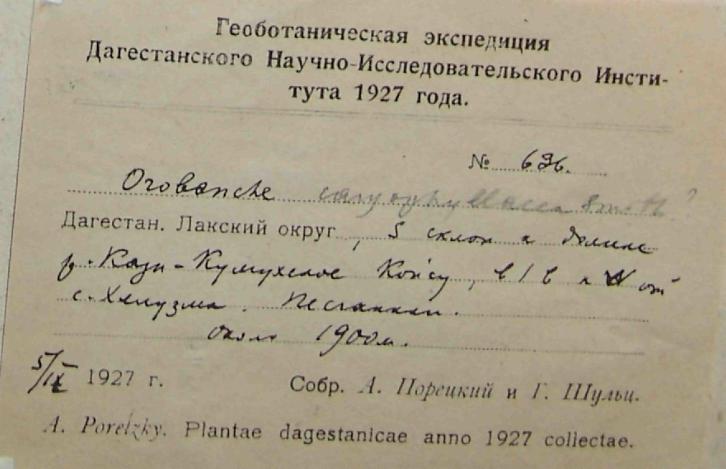 Геоботаническая экспедиция
Дагестанского Научно-Исследовательского Инсти-
тута 1927 года.
№ 636.
Orobanche caryophyllacea Smith?
Дагестан. Лакский округ, S склон к долине
р. Кази-Кумухское Койсу, в 1 в к от
с. Хулузма. Песчаники.
около 1900 м.
5/IX 1927 г. Собр. А. Порецкий и Г. Шульц.
A. Poretzky. Plantae dagestanicae anno 1927 collectae.